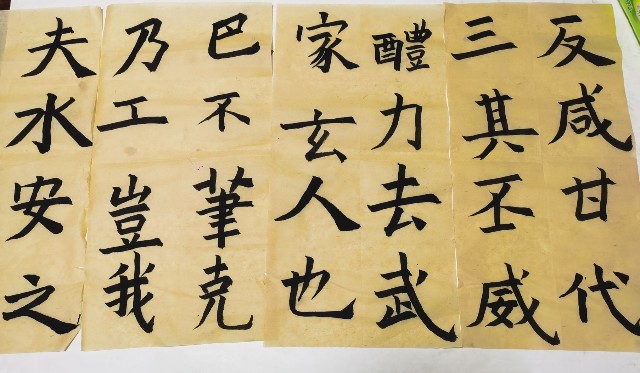 反咸甘代
三其丕威
醴力去武
家玄人也
巴不筆克
乃工豈我
夫水安之